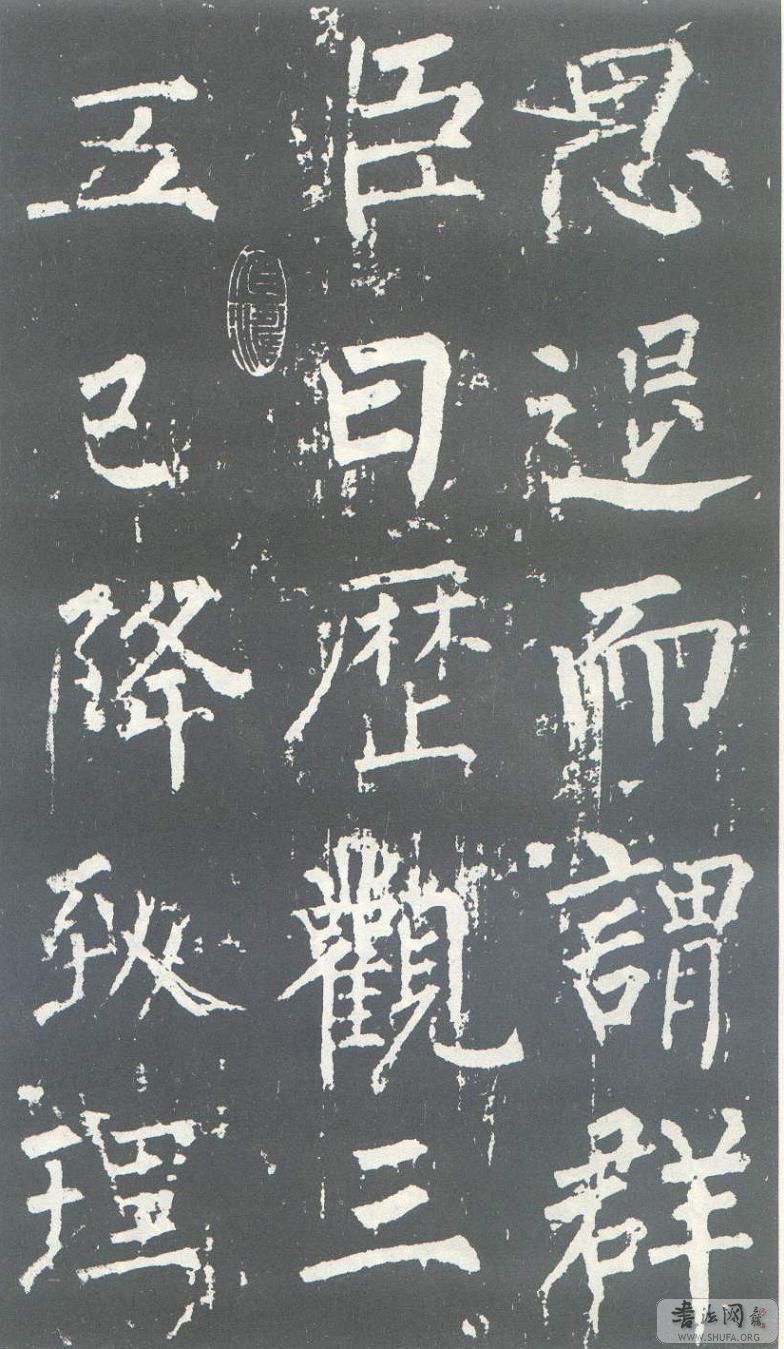 思退而謂群
臣曰歴觀三
五已降致理
书法网
WWW.SHUFA.ORG